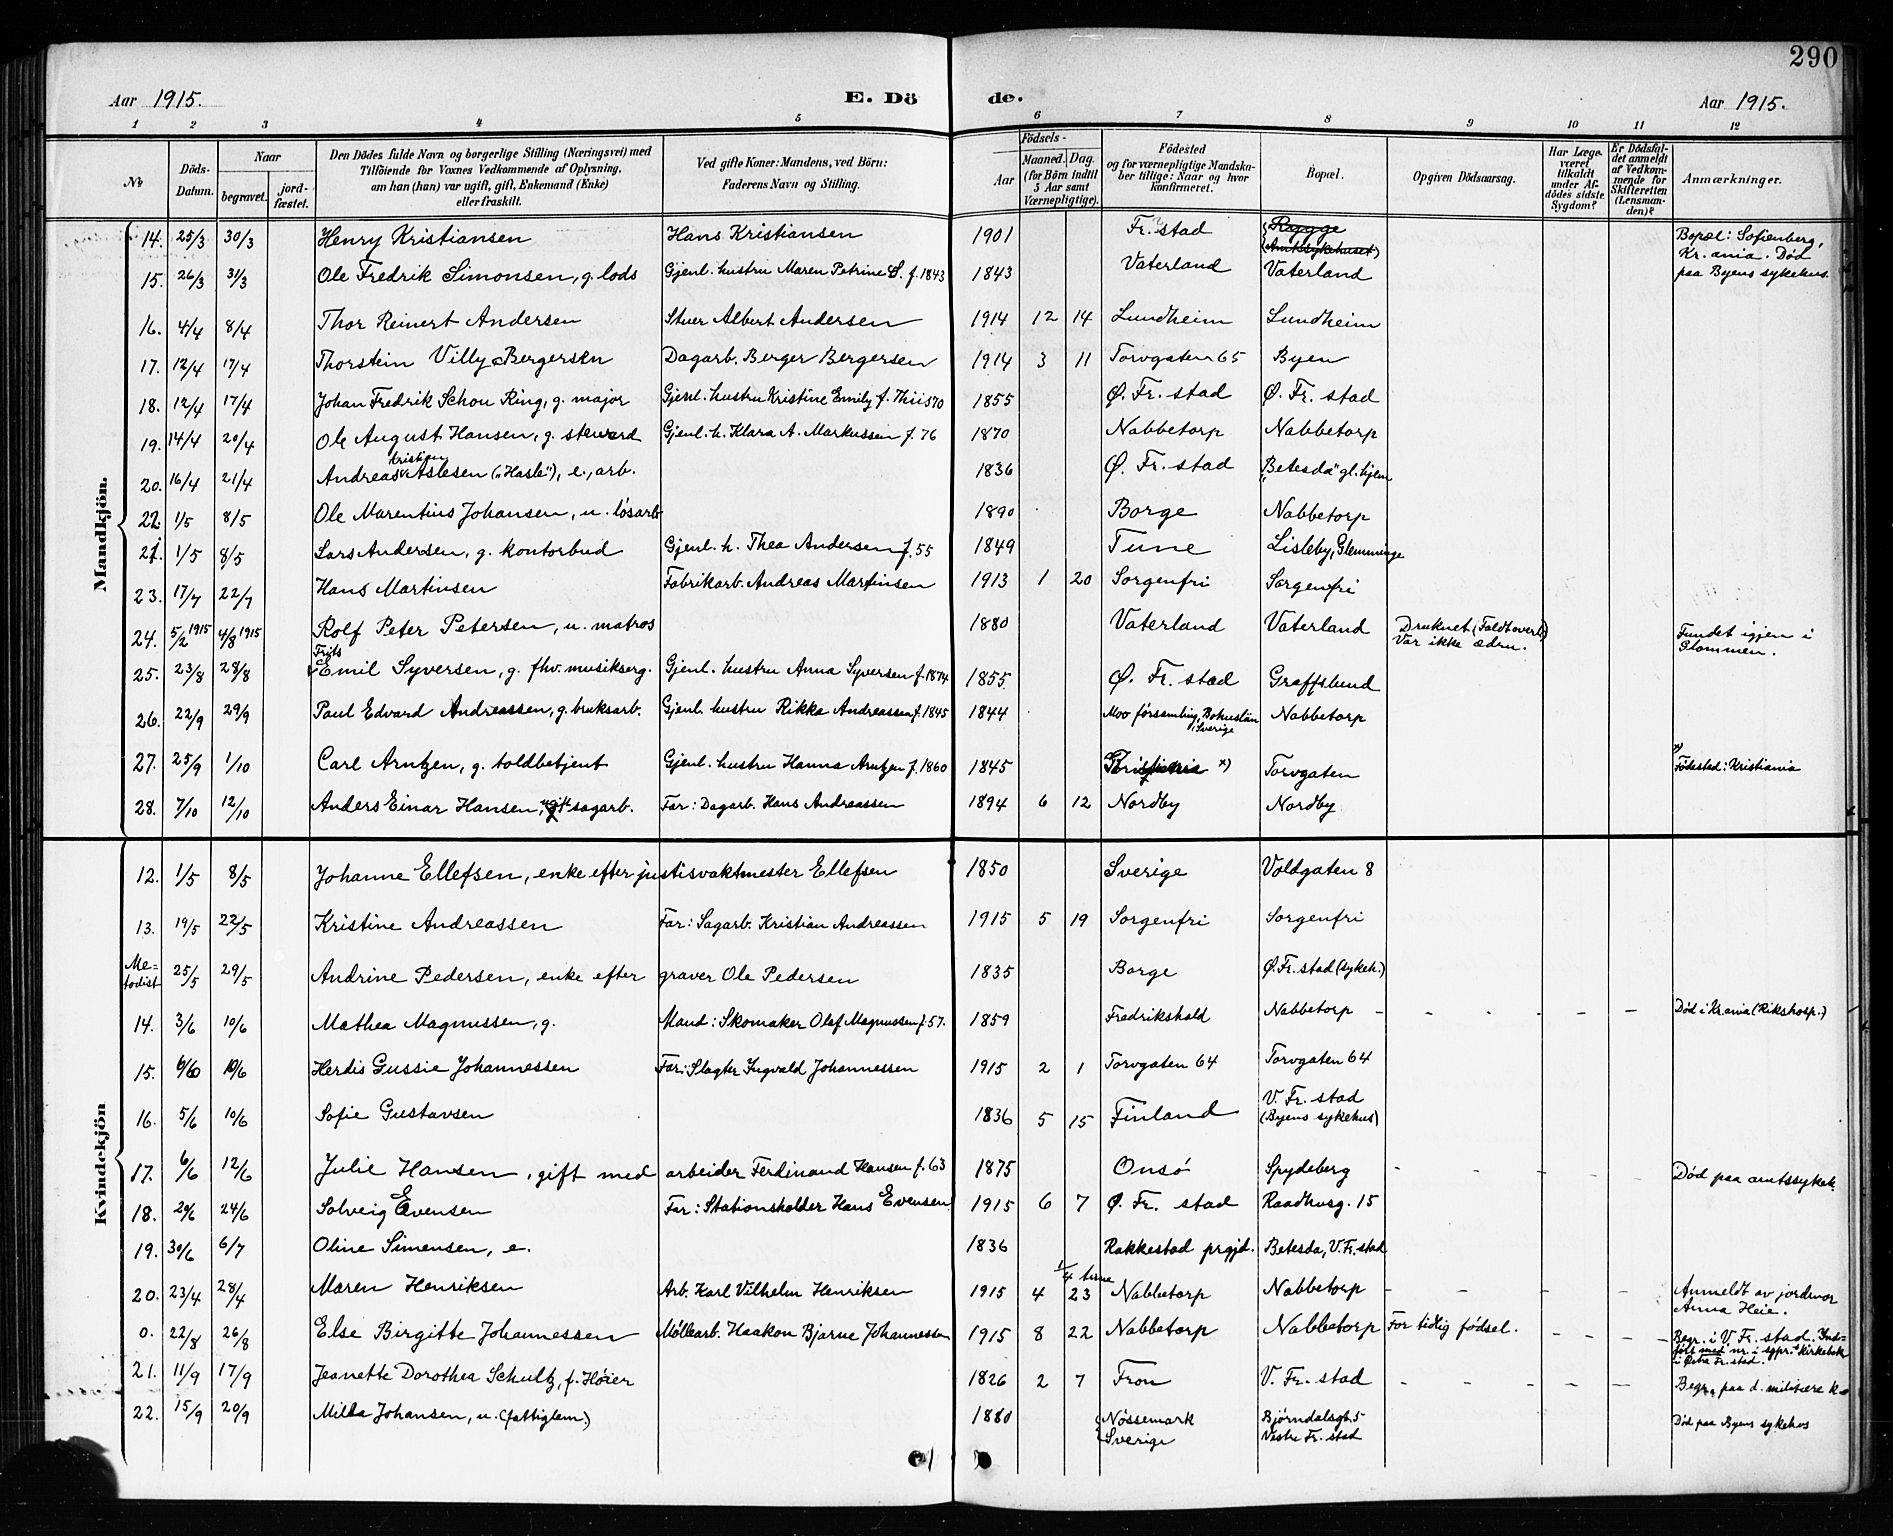 290
Aar 1915. E. Dö de. Aar 1915.
1 2 3 4 5 6 7 8 9 10 11 12
№ Döds-Datum. Naar begravet. jordfæstet. Den Dödes fulde Navn og borgerlige Stilling (Næringsvei) med Tilföiende for Voxnes Vedkommende af Oplysning, om han (hun) var ugift, gift, Enkemand (Enke) eller fraskilt. Ved gifte Koner: Mandens, ved Börn: Faderens Navn og Stilling. Födsels- Aar Maaned. Dag. (for Börn indtil 5 Aar samt Værnepligtige). Födested og for værnepligtige Mandskaber tillige: Naar og hvor konfirmeret. Bopæl. Opgiven Dödsaarsag. Har Læge været tilkaldt under Afdödes sidste Sygdom? Er Dödsfaldet anmeldt af Vedkommende for Skifteretten (Lensmanden)? Anmærkninger.
Mandkjön.
14. 25/3 30/3 Henry Kristiansen Hans Kristiansen 1901 Fr.stad Rygge (Amtssykehuset) Bopæl: Sofienberg, Kr.ania. Död paa Byens sykehus.
15. 26/3 31/3 Ole Fredrik Simonsen, g. lods Gjenl. hustru Maren Petrine S. f. 1843 1843 Vaterland Vaterland
16. 4/4 8/4 Thor Reinert Andersen Stuer Albert Andersen 1914 12 14 Lundheim Lundheim
17. 12/4 17/4 Thorstein Villy Bergersen Dagarb. Berger Bergersen 1914 3 11 Torvgaten 65 Byen
18. 12/4 17/4 Johan Fredrik Schou Ring, g. major Gjenl. hustru Kristine Emily f. Thiis 70 1855 Ø. Fr. stad Ø. Fr. stad
19. 14/4 20/4 Ole August Hansen, g. steward Gjenl. h. Klara A. Markussen f. 76 1870 Nabbetorp Nabbetorp
20. 16/4 21/4 Andreas Kristian Aslesen ("Hasle"), e., arb. 1836 Ø. Fr. stad "Betesda" gl. hjem
22. 1/5 8/5 Ole Marentius Johansen, u. løsarb 1890 Borge Nabbetorp
21. 1/5 8/5 Lars Andersen, g. kontorbud Gjenl. h. Thea Andersen f. 55 1849 Tune Lisleby, Glemminge
23. 17/7 22/7 Hans Martinsen Fabrikarb. Andreas Martinsen 1913 1 20 Sorgenfri Sorgenfri
24. 5/2 1915 4/8 1915 Rolf Peter Petersen, u. matros 1880 Vaterland Vaterland Druknet (Faldt overb.) Var ikke ædru. Fundet igjen i Glommen.
25. 23/8 28/8 Frits Emil Syversen, g. fhv. musikserg. Gjenl. hustru Anna Syversen f. 1874 1855 Ø. Fr. stad Graffslund
26. 22/9 29/9 Paul Edvard Andreassen, g. bruksarb. Gjenl. hustru Rikka Andreassen f. 1845 1844 Moo församling, Bohuslän, Sverige Nabbetorp
27. 25/9 1/10 Carl Arntzen, g. toldbetjent Gjenl. hustru Hanna Arntzen f. 1860 1845 x) Torvgaten x) Födested: Kristiania
28. 7/10 12/10 Anders Einar Hansen, sagarb. Far: Dagarb. Hans Andreassen 1894 6 12 Nordby Nordby
Kvindekjön
12. 1/5 8/5 Johanne Ellefsen, enke efter justisvaktmester Ellefsen 1850 Sverige Voldgaten 8
13. 19/5 22/5 Kristine Andreassen Far: Sagarb. Kristian Andreassen 1915 5 19 Sorgenfri Sorgenfri
Metodist 25/5 29/5 Andrine Pedersen, enke efter graver Ole Pedersen 1835 Borge Ø. Fr. stad (sykeh.)
14. 3/6 10/6 Mathea Magnussen, g. Mand: Skomaker Olaf Magnussen f. 57. 1859 Fredrikshald Nabbetorp - - - - - Død i Kr.ania (Rikshosp.)
15. 6/6 10/6 Herdis Gussie Johannessen Far: Slagter Ingvald Johannessen 1915 2 1 Torvgaten 64 Torvgaten 64
16. 5/6 10/6 Sofie Gustavsen 1836 5 15 Finland V. Fr. stad (Byens sykehus)
17. 6/6 12/6 Julie Hansen, gift med arbeider Ferdinand Hansen f. 63 1875 Onsö Spydeberg - - - - - Død paa amtssykeh.
18. 20/6 24/6 Solveig Evensen Far: Stationsholder Hans Evensen 1915 6 7 Ø. Fr. stad Raadhusg. 15
19. 30/6 6/7 Oline Simensen, e. 1836 Rakkestad prgjd. Betesda, V. Fr. stad
20. 23/4 28/4 Maren Henriksen Arb. Karl Vilhelm Henriksen 1915 4 23 1/4 time Nabbetorp Nabbetorp - - - - - Anmeldt av jordmor Anna Heie.
0. 22/8 26/8 Else Birgitte Johannessen Møllearb. Haakon Bjarne Johannessen 1915 8 22 Nabbetorp Nabbetorp For tidlig födsel. - - - - Begr. i V. Fr. stad. Indført med nr. i sgpr.s kirkebok i Østre Fr. stad.
21. 11/9 17/9 Jeanette Dorothea Schultz, f. Høier 1826 2 7 Fron V. Fr. stad - - - - - Begr. paa d. militære k
22. 15/9 20/9 Milla Johansen, u. (fattiglem.) 1880 Nössemark Sverige Bjørndalsgt. 5 Vestre Fr. stad Død paa Byens sykehus